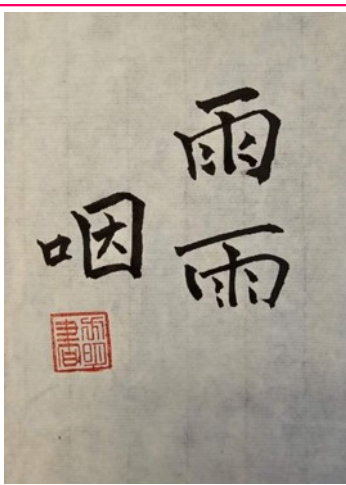 雨雨
咽